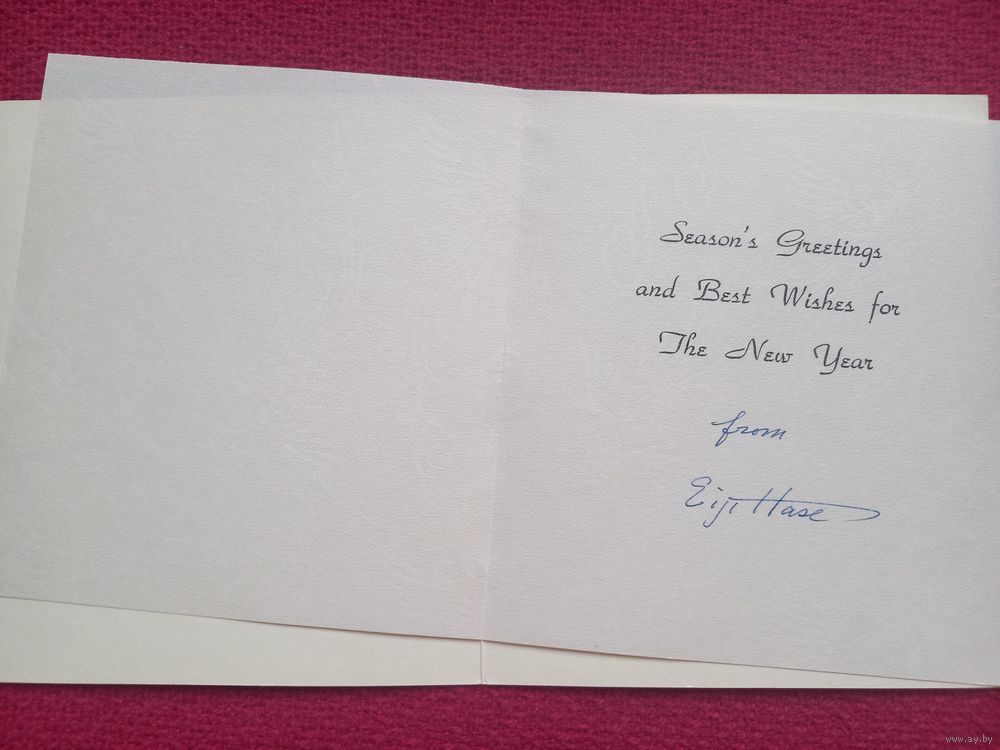 Season's Greetings
and Best Wishes for
The New Year
from
Eiji Hase
www.ay.by